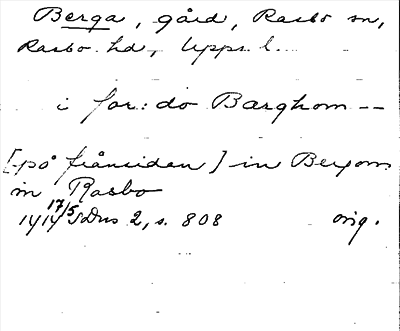 Berga, gård, Rasbo sn,
Rasbo hd, Upps. l.
i for: do Barghom --
[på frånsidan] in Bergom
in Rasbo
1414 17/5 SDns 2, s. 808 orig.